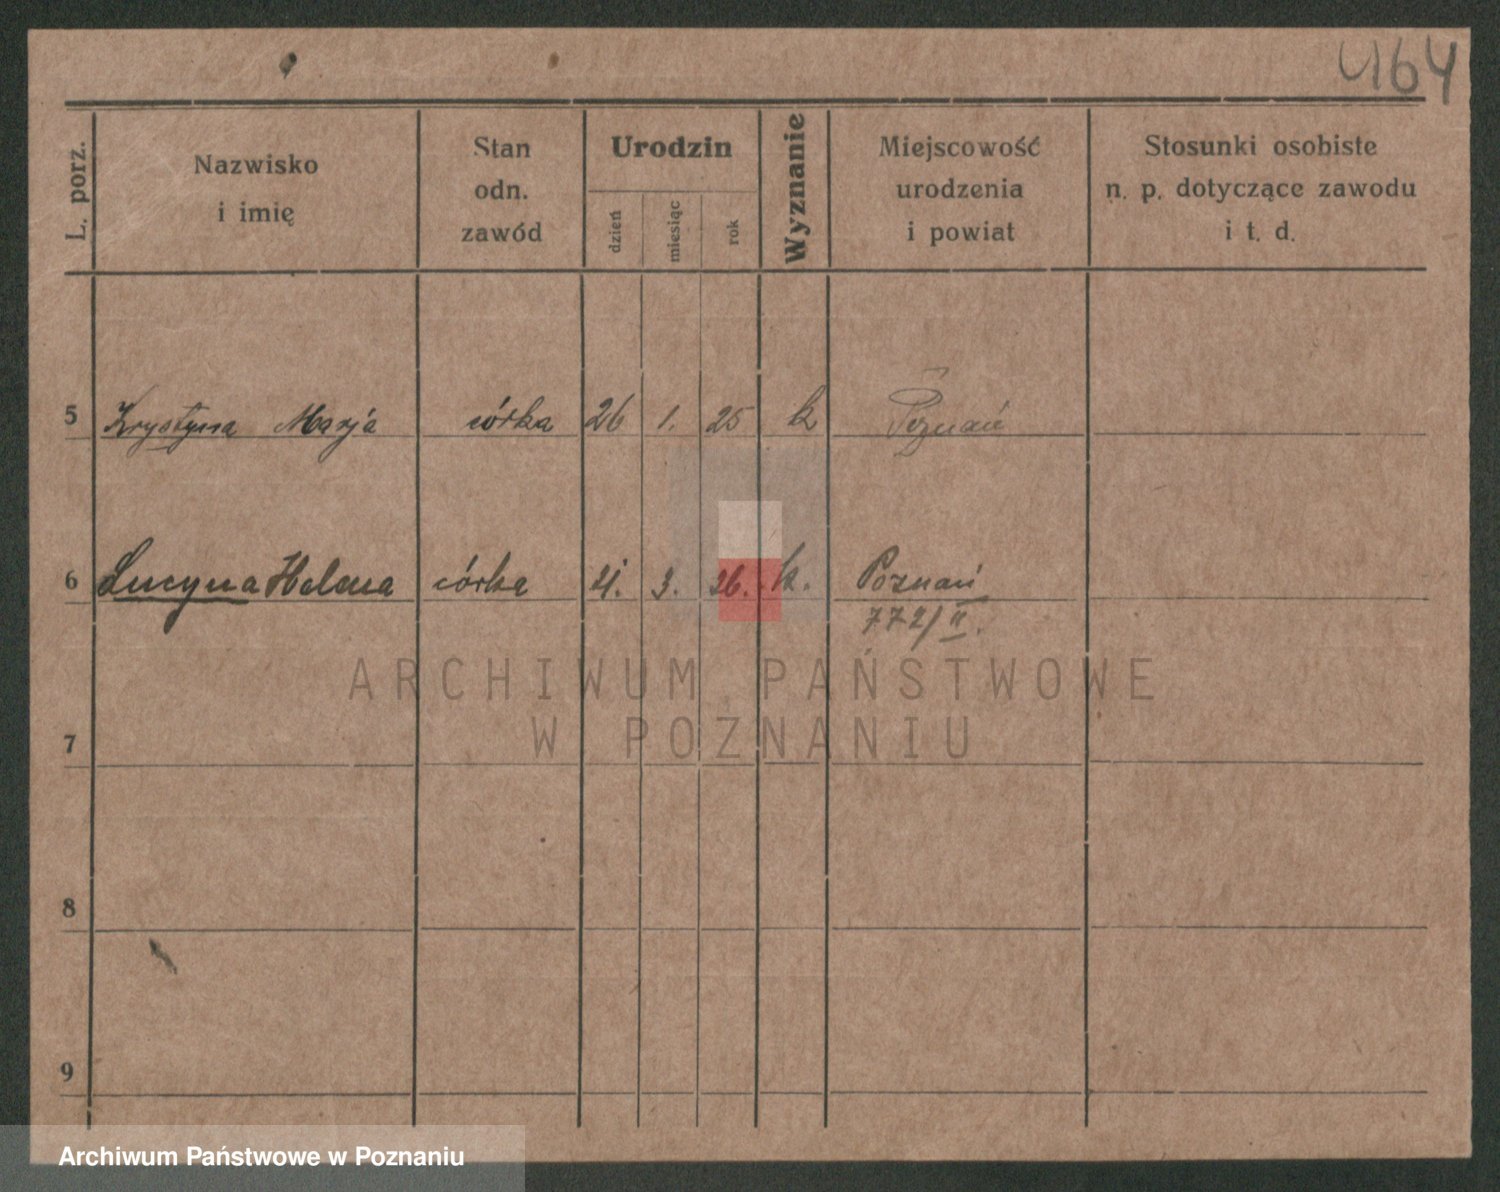 464
L. porz.
Nazwisko
i imię
Stan
odn.
zawód
Urodzin
dzień
miesiąc
rok
Wyznanie
Miejscowość
urodzenia
i powiat
Stosunki osobiste
n. p. dotyczące zawodu
i t. d.
5 Krystyna Marja córka 26 1. 25 k Poznań
6 Lucyna Helena córka 21. 3. 26. k. Poznań
772/II.
7
8
9
ARCHIWUM PAŃSTWOWE
W POZNANIU
Archiwum Państwowe w Poznaniu